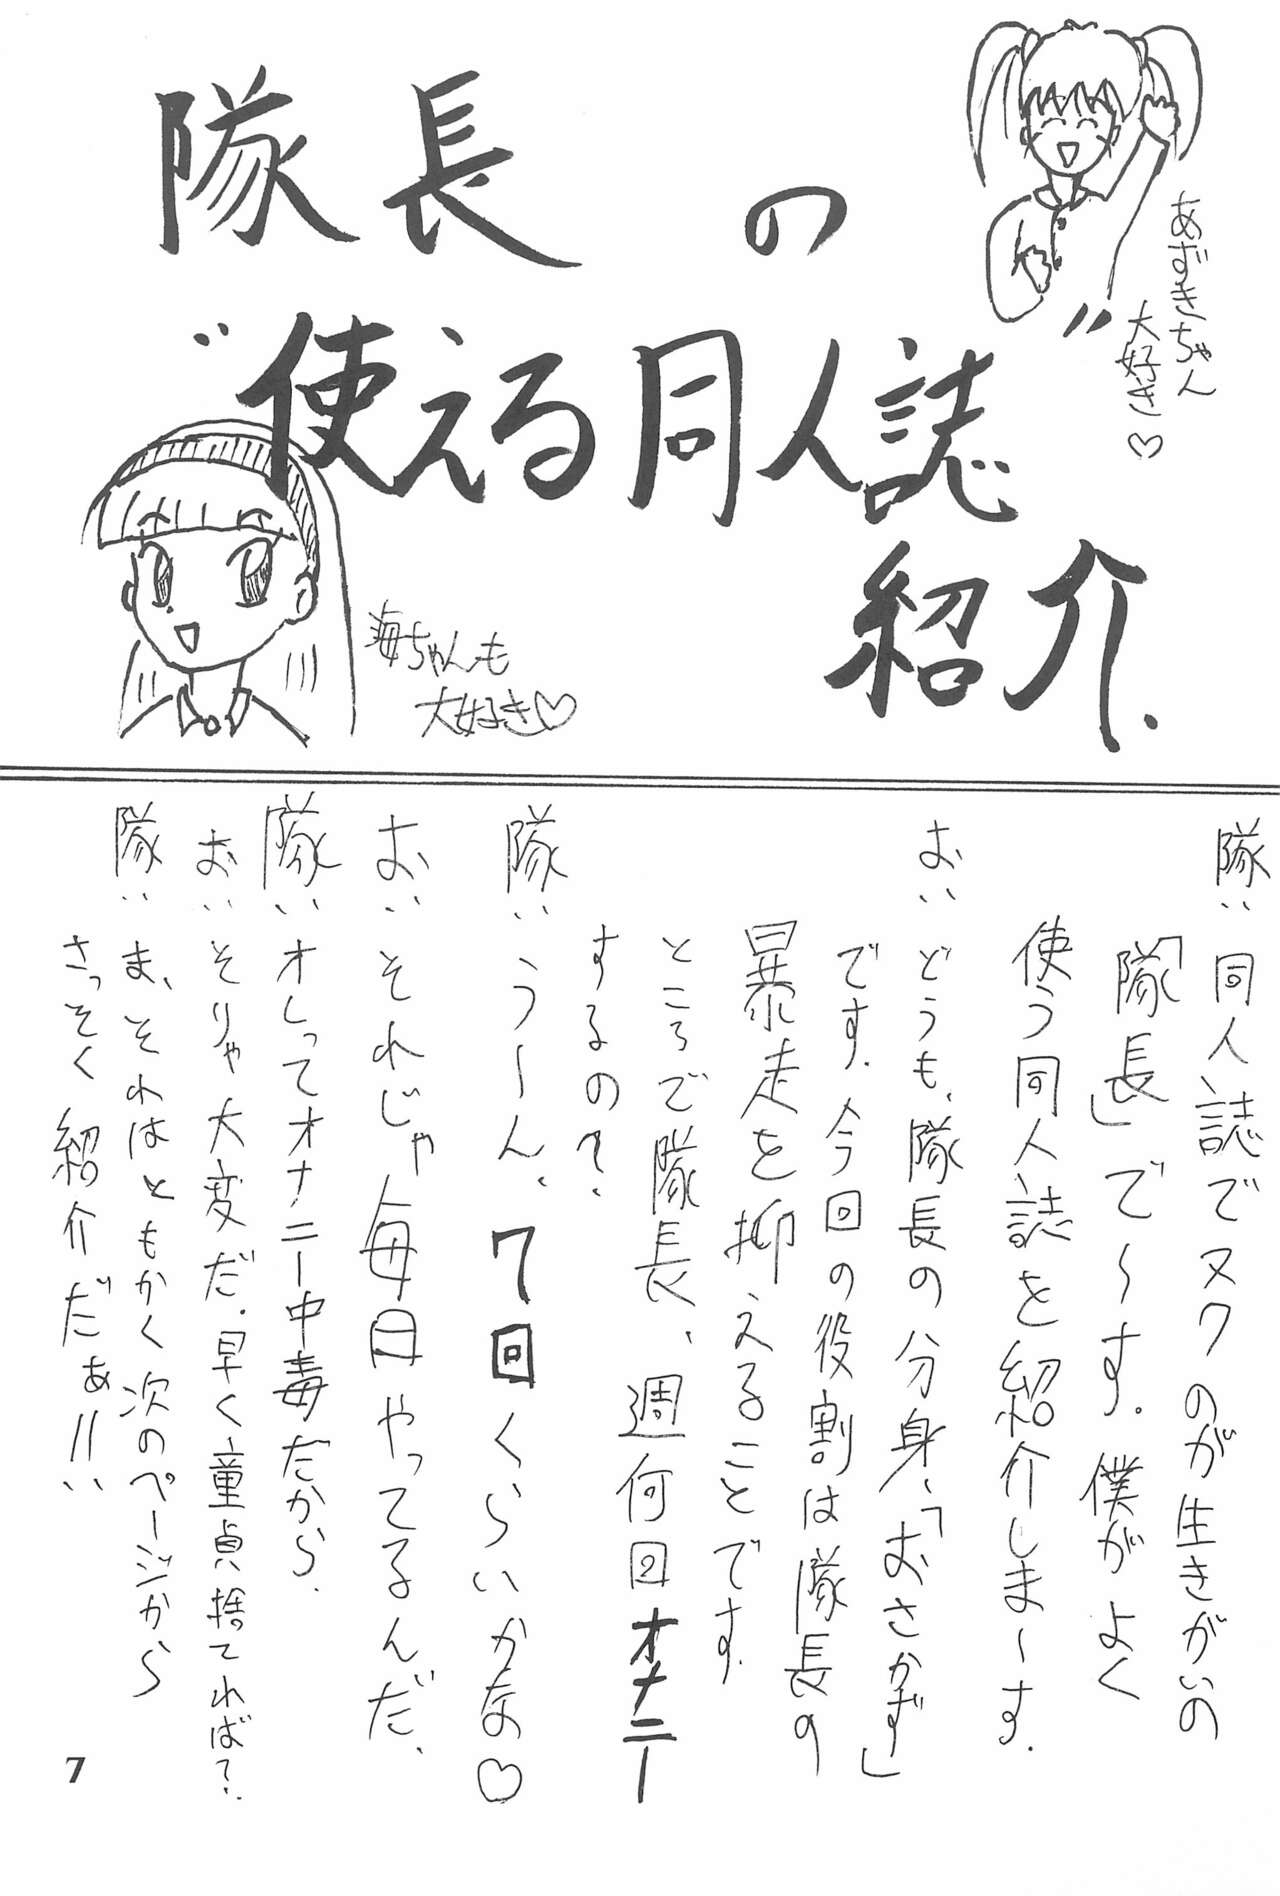 隊長の
"使える同人誌"
紹介.
あずきちゃん
大好き♡
海ちゃんも
大好き♡
隊:同人誌でヌクのが生きがいの
「隊長」で〜す。僕がよく
使う同人誌を紹介しま〜す.
お:どうも、隊長の分身、「おさかず」
です.今回の役割は隊長の
暴走を抑えることです.
ところで隊長、週何回オナニー
するの?
隊:う〜ん、7回くらいかな♡
お:それじゃ毎日やってるんだ、
隊:オレってオナニー中毒だから.
お:そりゃ大変だ.早く童貞捨てれば?
隊:ま、それはともかく次のページから
さっそく紹介だぁ!!
7